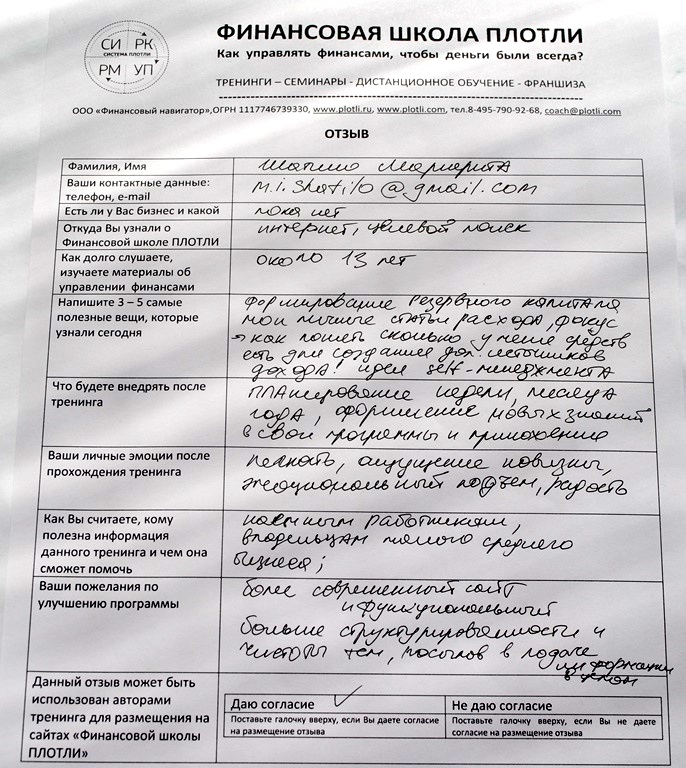 СИ РК
СИСТЕМА ПЛОТЛИ
РМ УП
ФИНАНСОВАЯ ШКОЛА ПЛОТЛИ
Как управлять финансами, чтобы деньги были всегда?
ТРЕНИНГИ – СЕМИНАРЫ - ДИСТАНЦИОННОЕ ОБУЧЕНИЕ - ФРАНШИЗА
ООО «Финансовый навигатор»,ОГРН 1117746739330, www.plotli.ru, www.plotli.com, тел.8-495-790-92-68, coach@plotli.com
ОТЗЫВ
Фамилия, Имя
Шатило Маргарита
Ваши контактные данные:
телефон, e-mail
m.i.Shatilo@gmail.com
Есть ли у Вас бизнес и какой
пока нет
Откуда Вы узнали о
Финансовой школе ПЛОТЛИ
интернет, целевой поиск
Как долго слушаете,
изучаете материалы об
управлении финансами
около 13 лет
Напишите 3 – 5 самые
полезные вещи, которые
узнали сегодня
формирование резервного капитала
мои личные статьи расхода, фокус
как понять сколько у меня средств
есть для создания доп. источников
дохода! идеи self-менеджмента
Что будете внедрять после
тренинга
планирование недели, месяца
года, оформление новых знаний
в свои программы и приложение
Ваши личные эмоции после
прохождения тренинга
легкость, ощущение новизны,
эмоциональный подъем, радость
Как Вы считаете, кому
полезна информация
данного тренинга и чем она
сможет помочь
наемным работникам,
владельцам малого среднего
бизнеса;
Ваши пожелания по
улучшению программы
более современный сайт
и функциональный
больше структурированности и
чистоты тем, посылов в подаче
информации
Данный отзыв может быть
использован авторами
тренинга для размещения на
сайтах «Финансовой школы
ПЛОТЛИ»
Даю согласие ✓
Поставьте галочку вверху, если Вы даете согласие
на размещение отзыва
Не даю согласие
Поставьте галочку вверху, если Вы не даете
согласие на размещение отзыва